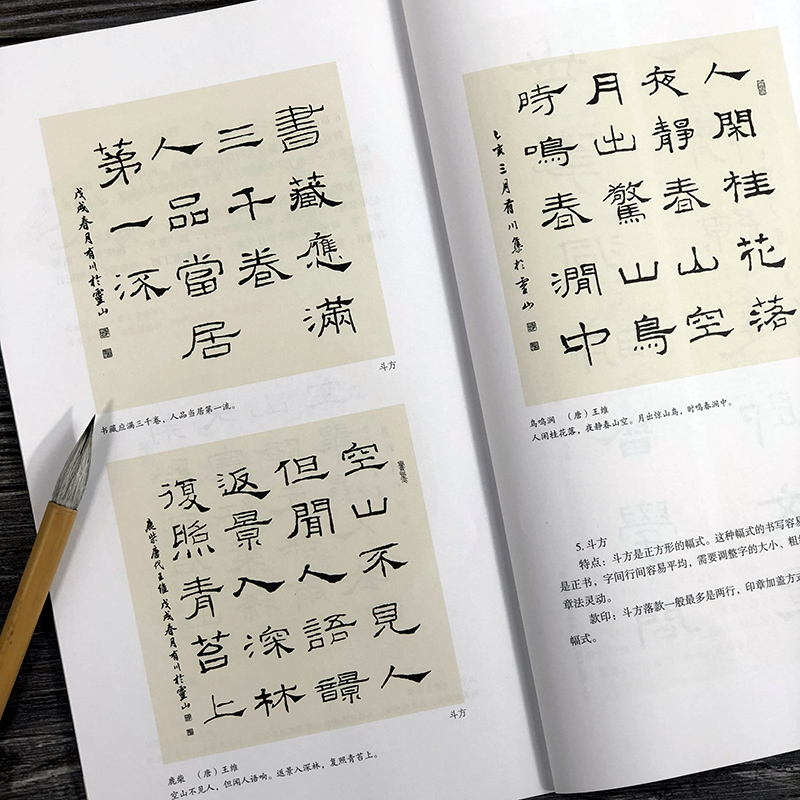 書藏應滿
三千卷
人品當居
第一流
戊戌春月有川於靈山
斗方
书藏应满三千卷，人品当居第一流。
空山不見人
但聞人語響
返景入深林
復照青苔上
鹿柴唐代王維戊戌春月有川於靈山
斗方
鹿柴 （唐）王维
空山不见人，但闻人语响。返景入深林，复照青苔上。
人閑桂花落
夜靜春山空
月出驚山鳥
時鳴春澗中
己亥三月有川於靈山
鸟鸣涧 （唐）王维
人闲桂花落，夜静春山空。月出惊山鸟，时鸣春涧中。
5. 斗方
特点：斗方是正方形的幅式。这种幅式的书写容易
是正书，字间行间容易平均，需要调整字的大小、粗
章法灵动。
款印：斗方落款一般最多是两行，印章加盖方式
幅式。